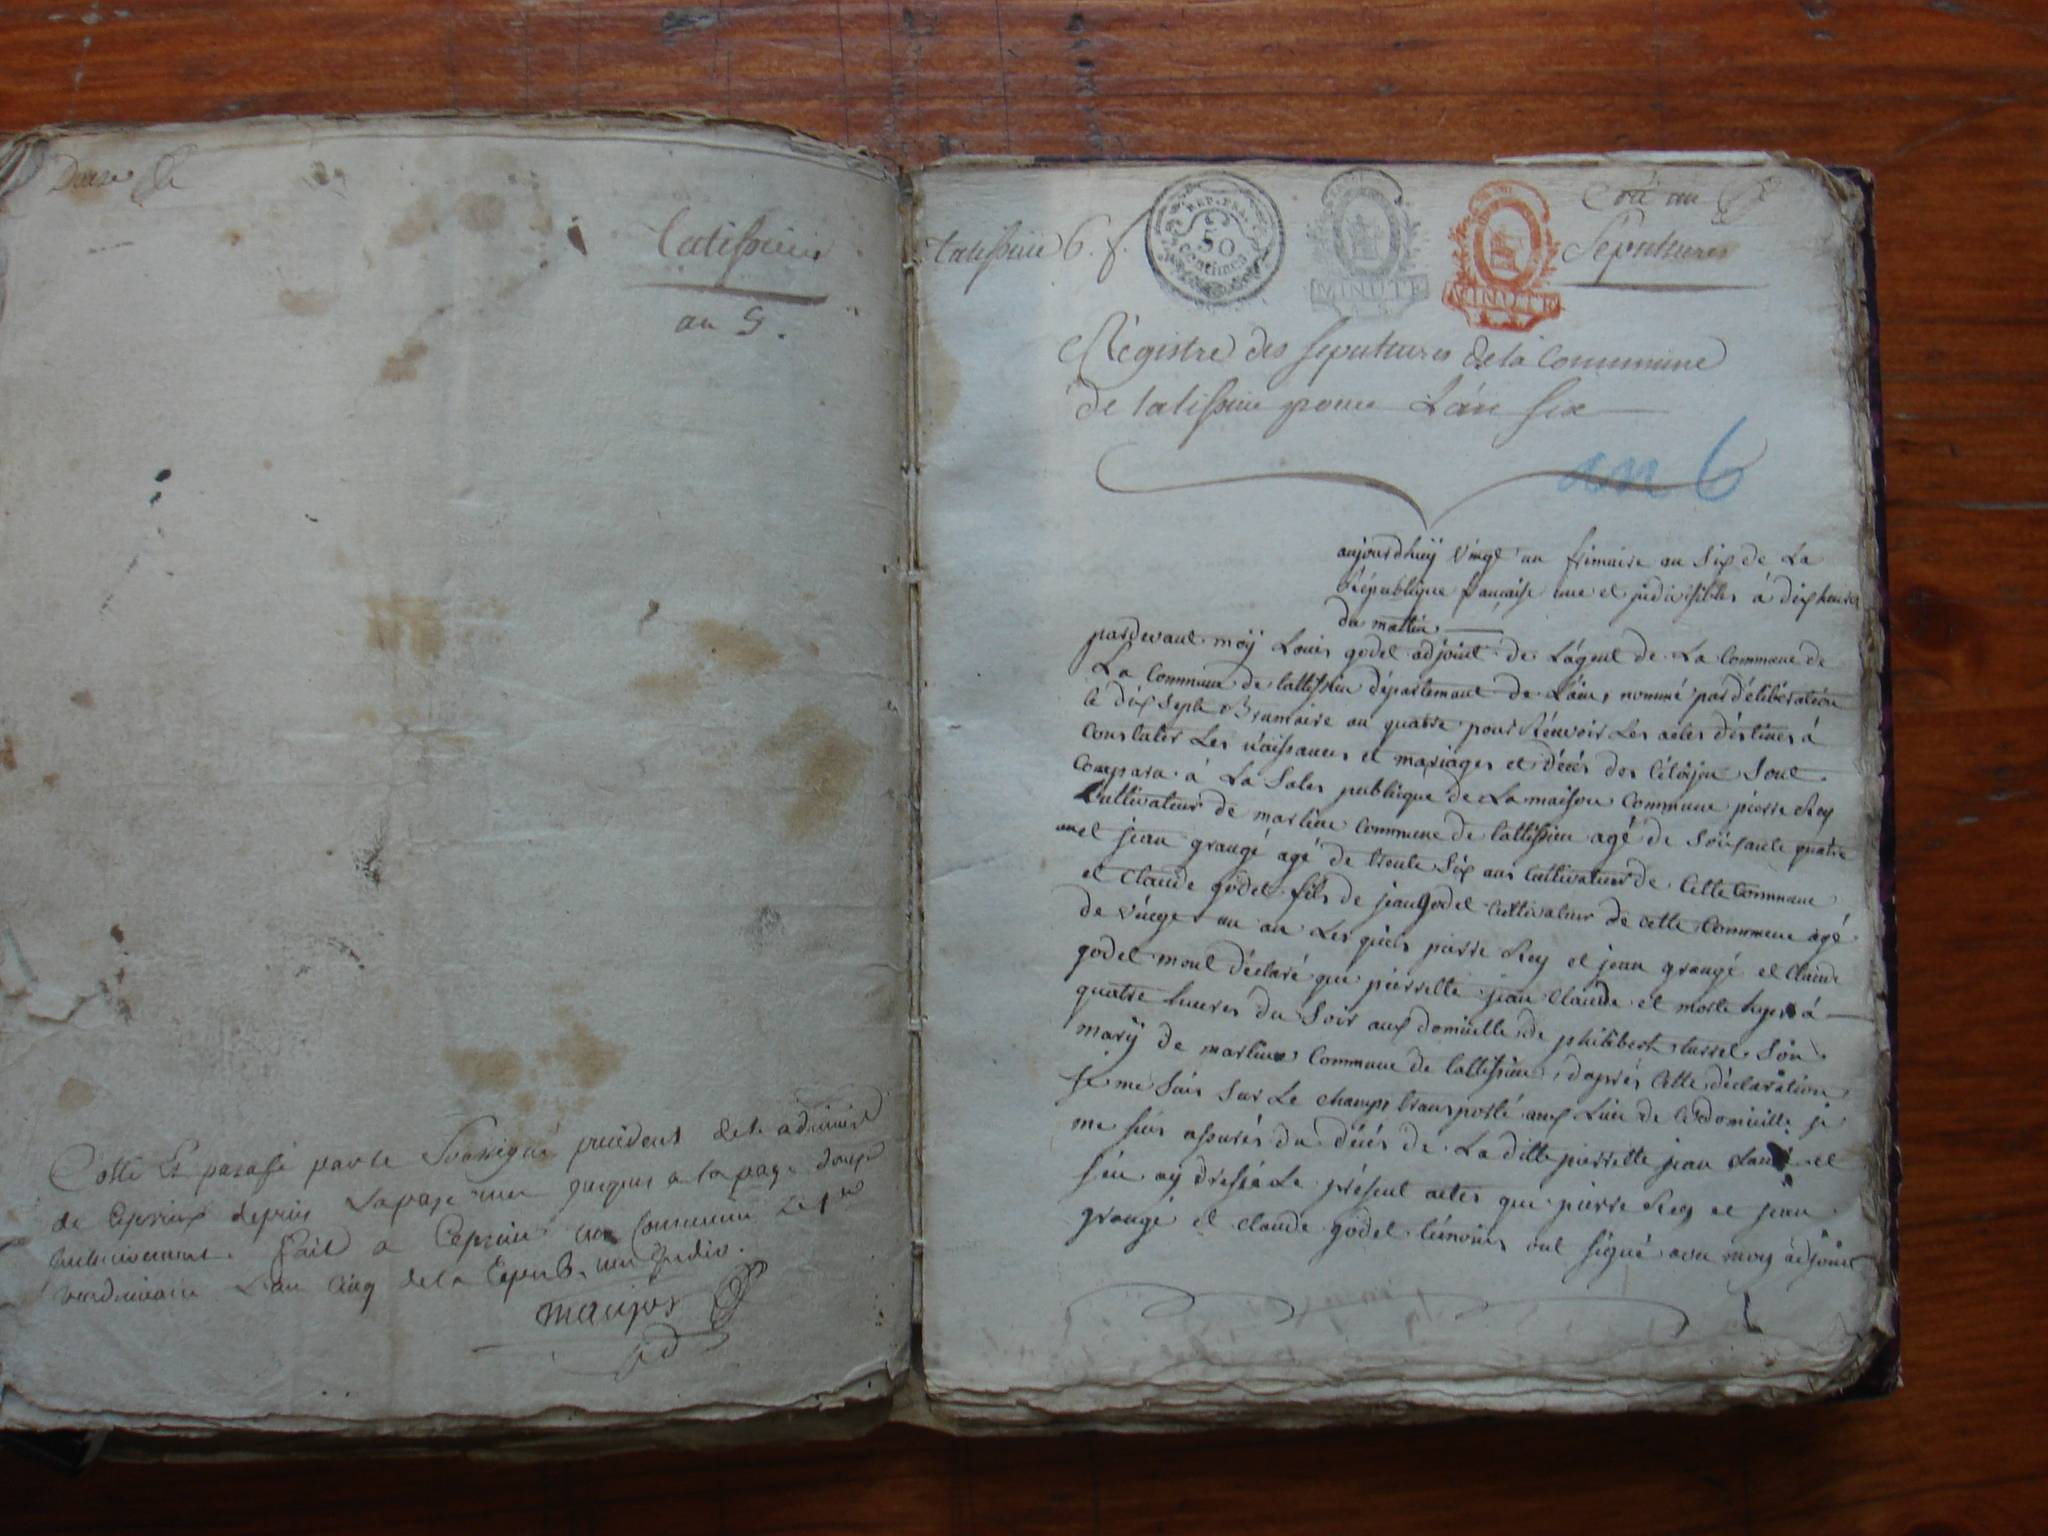 Douze
Latissiere
an 5.
Cotté Et parafé par le Soussigné président de l'administ
de Ceyzeriat depuis la page une jusques a la page douze
inclusivement. fait a en Commune Le 1er
vendemiaire L'an Cinq de la Repub. une et Indiv.
Latissiere 6. f.
REP. FRA.
50
Centimes
MINUTE
MINUTE
Sepultures
Régistre des sepultures de la Commune
de Latissiere pour L'an six
an 6
aujourdhuÿ vingt un frimaire an Six de La
République francaise une et jndivisibles à dix heures
du mattin
pardevant moÿ Louis godet adjoint de Lágent de La Commune de
La Commune de Lattissiere départemant de L'ain, nommé par délibération
le dix sept Brumaire an quatre pour Réçevoir Les actes déstinés à
Constater Les naissances et mariages et décés des Citoÿen Sont
Compara à La Sales publique de La maison Commune pierre Rey
Cultivateur de marlieu Commune de Lattissiere agé de Soixante quatre
an et jean grangé agé de trente Six ans Cultivateur de Cette Commune
et Claude godet fils de jean godet Cultivateur de cette Commune agé
de vingt un an Les quels pierre Rey et jean grangé et Claude
godet mont déclaré que pierrette jean Claude et morte hyer à
quatre heures du Soir aux domicille de philibert Son
marÿ de marlieu Commune de Lattissiere, daprés Cette déclaration
je me Suis Sur Le champs transporté aux Lieu de Cé domicille je
me suis assurés du décés dé La ditte pierrette jean Claude et
jén aÿ dréssé Le présent actes que pierre Rey et jean
grangé et Claude godet témoins ont signé avec moy adjoint